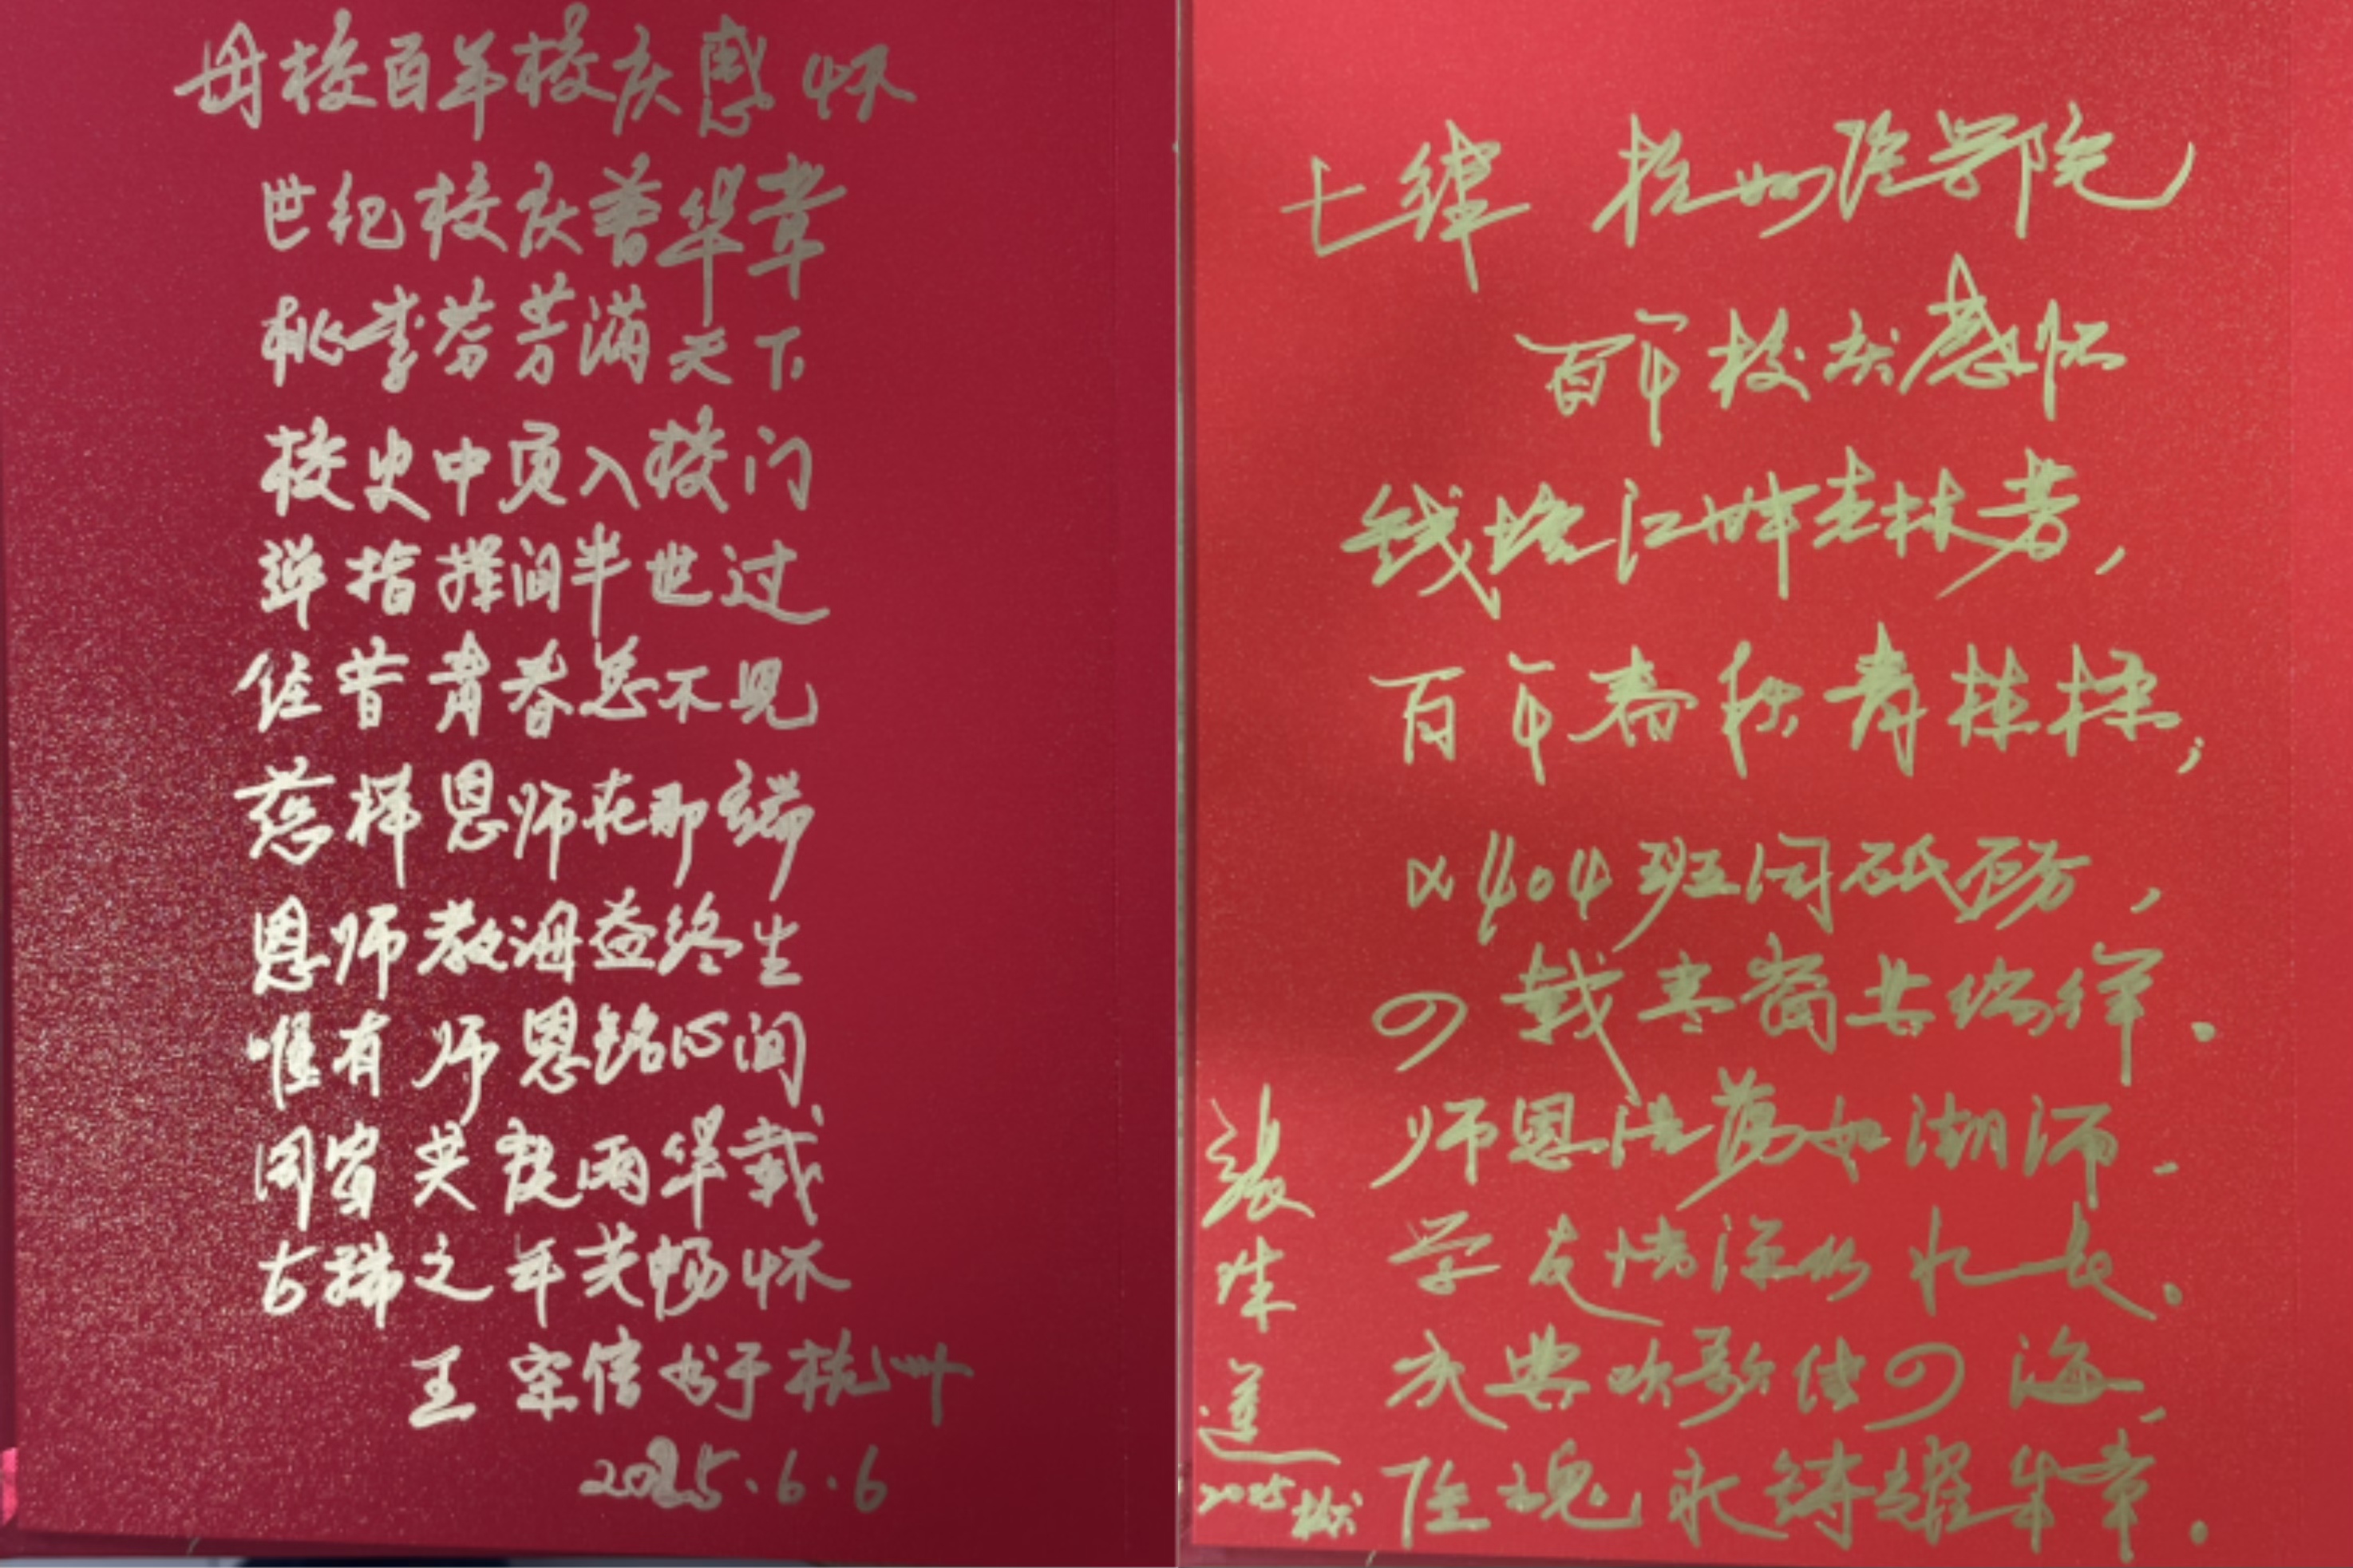 母校百年校庆感怀
世纪校庆普华章
桃李芬芳满天下
校史中页入校门
弹指挥间半世过
往昔青春总不见
慈祥恩师在那端
恩师教诲益终生
唯有师恩铭心间
同窗共度两年载
古稀之年共畅怀
王宗信书于杭州
2025.6.6
七律 杭州医学院
百年校庆感怀
钱塘江畔杏林芳,
百年春秋育栋梁;
α404班同砥砺,
四载寒窗共
师恩浩荡如潮涌,
学友情深似水长。
庆典欢歌传四海,
医魂永铸耀华章。
张
莲
2025杭